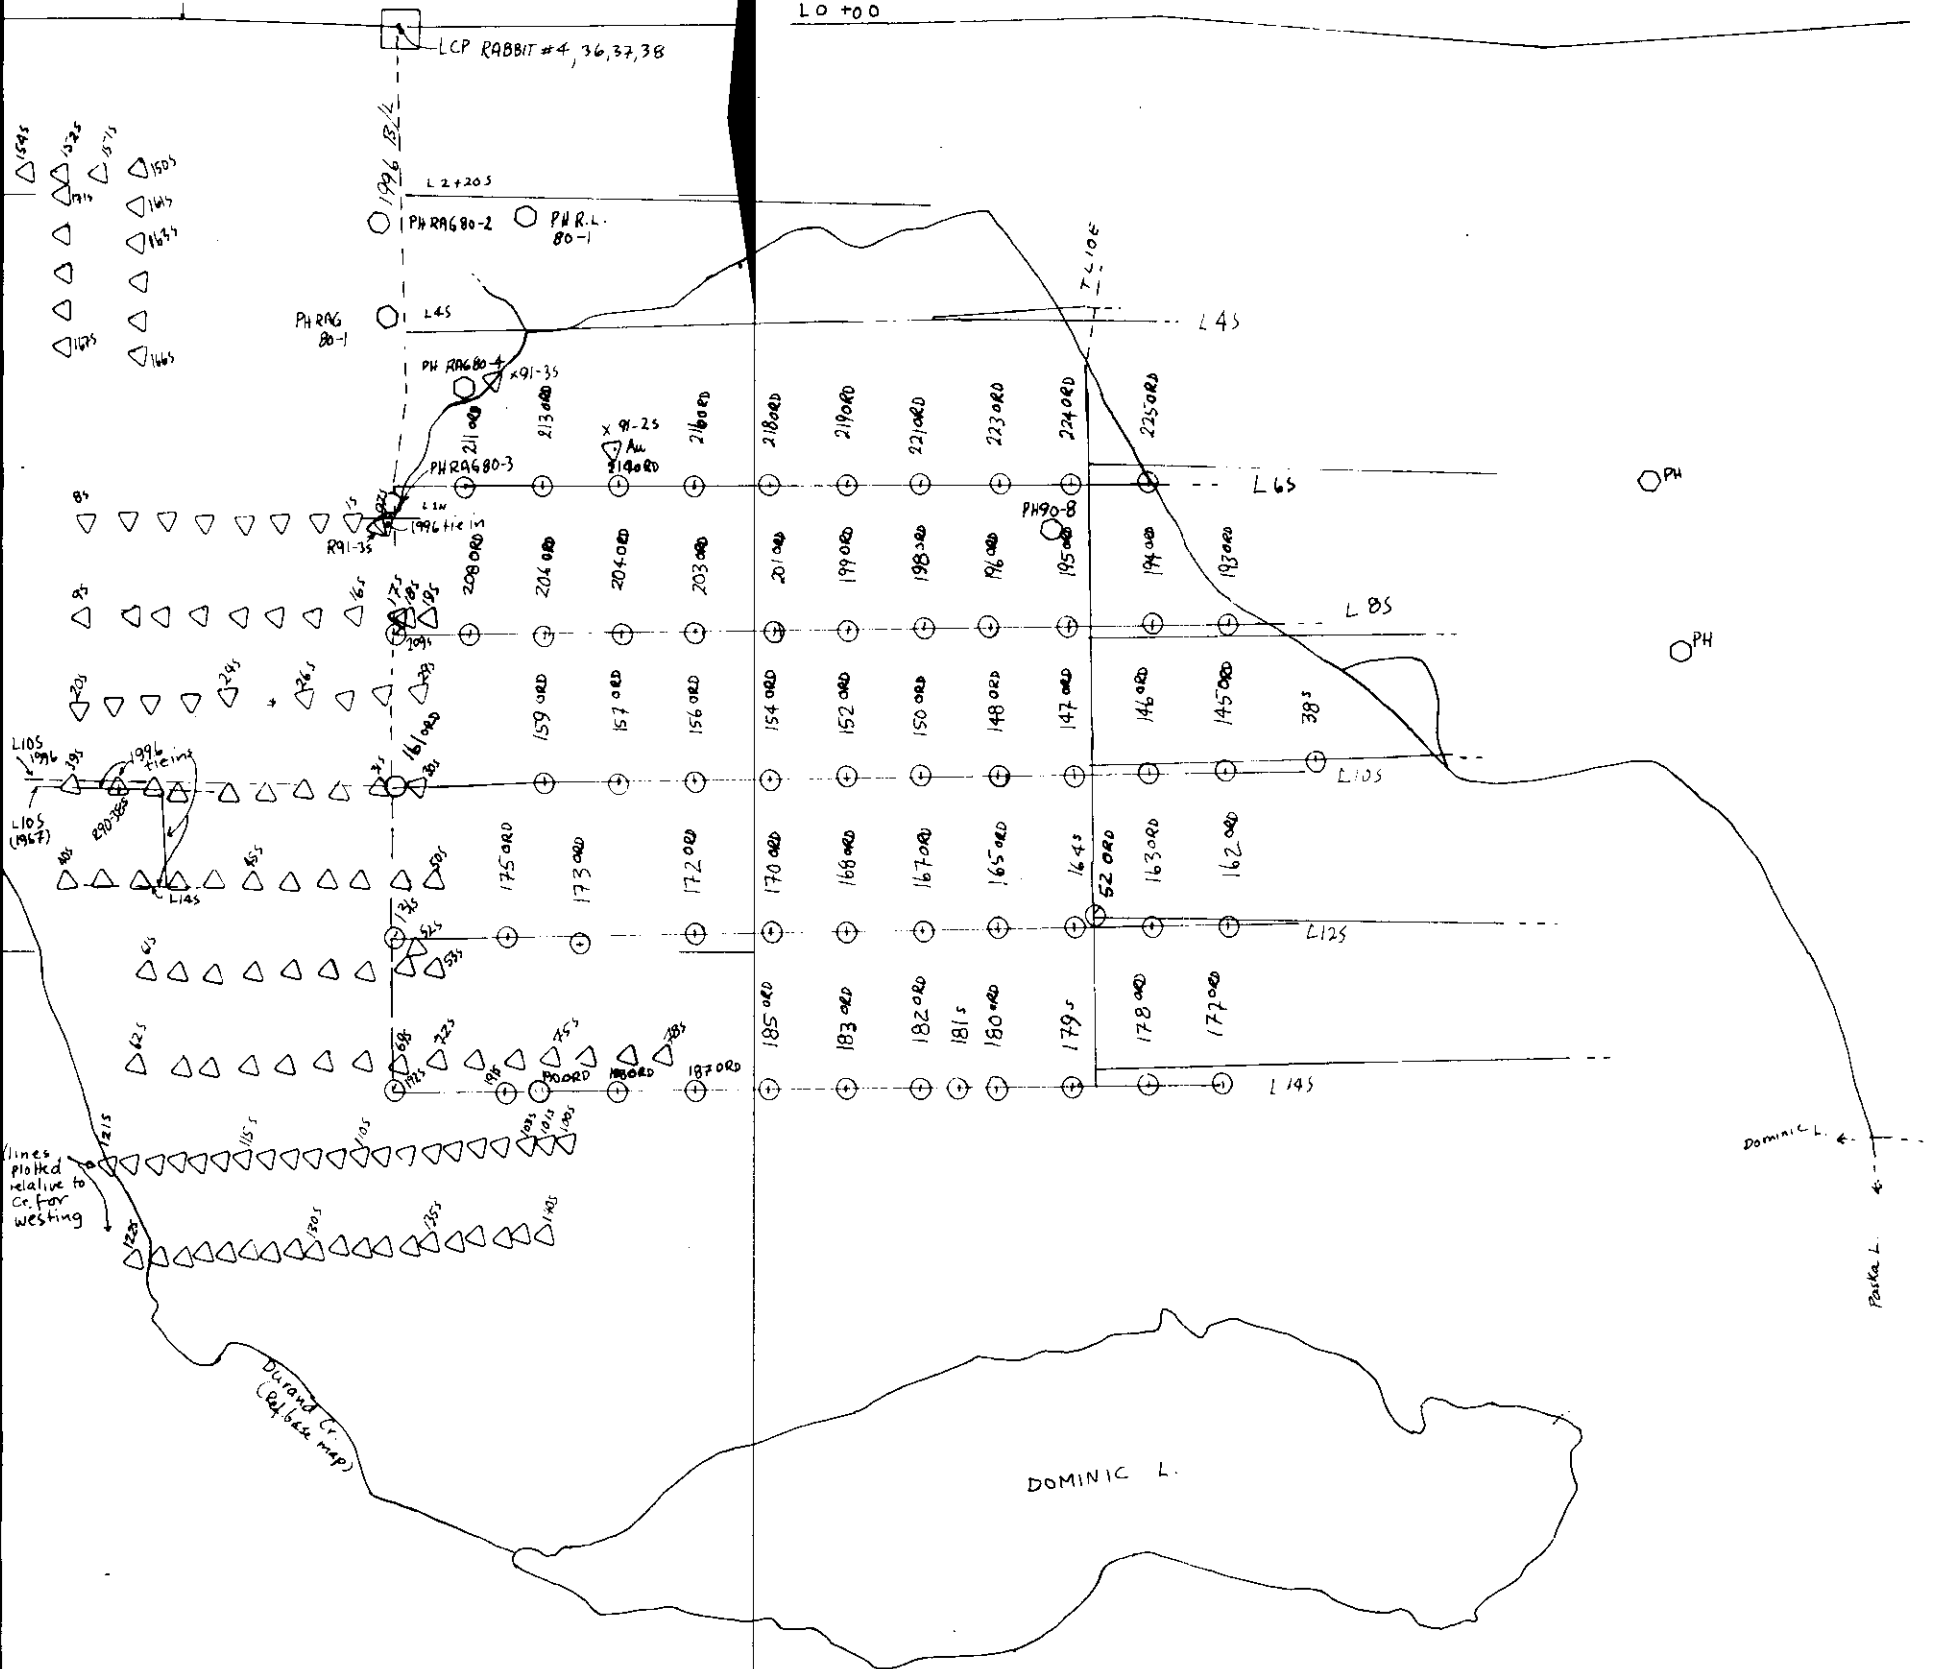 L0+00
LCP RABBIT #4, 36, 37, 38
1996 B/L
154S
152S
151S
150S
171S
161S
163S
L2+20S
PHRAG80-2
PH R.L.
80-1
TL10E
PH RAG
80-1
L4S
L4S
167S
166S
PH RAG80-4
x91-3S
211 ORD
213 ORD
x 91-2S
Au
214 ORD
216 ORD
218 ORD
219 ORD
221 ORD
223 ORD
224 ORD
225 ORD
PHRAG80-3
L6S
PH
8S
1S
1996 tie in
R91-3S
PH90-8
208 ORD
206 ORD
204 ORD
203 ORD
201 ORD
199 ORD
198 ORD
196 ORD
195 ORD
194 ORD
193 ORD
9S
16S
17S
18S
19S
209S
L8S
PH
20S
24S
26S
29S
161 ORD
159 ORD
157 ORD
156 ORD
154 ORD
152 ORD
150 ORD
148 ORD
147 ORD
146 ORD
145 ORD
38S
L10S
1996
39S
1996
tie ins
31S
30S
L10S
L10S
(1967)
R90-38S
40S
45S
50S
L14S
175 ORD
173 ORD
172 ORD
170 ORD
168 ORD
167 ORD
165 ORD
164S
52 ORD
163 ORD
162 ORD
137S
52S
53S
L12S
185 ORD
183 ORD
182 ORD
181S
180 ORD
179S
178 ORD
177 ORD
62S
69S
72S
75S
78S
192S
191S
190 ORD
188 ORD
187 ORD
L14S
121S
115S
110S
102S
101S
100S
(lines
plotted
relative to
Cr. for
westing
Dominic L.
122S
130S
135S
140S
Paska L.
Durand Cr.
(Ref. base map)
DOMINIC L.